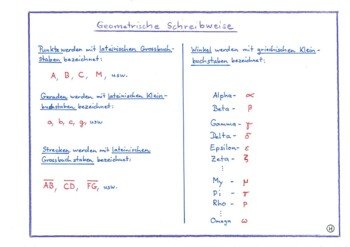 Geometrische Schreibweise
Punkte werden mit lateinischen Grossbuch-
staben bezeichnet:
A, B, C, M, usw.
Geraden werden mit lateinischen Klein-
buchstaben bezeichnet:
a, b, c, g, usw.
Strecken werden mit lateinischen
Grossbuchstaben bezeichnet:
A̅B̅, C̅D̅, F̅G̅, usw.
Winkel werden mit griechischen Klein-
buchstaben bezeichnet:
Alpha - α
Beta - β
Gamma - γ
Delta - δ
Epsilon - ε
Zeta - ζ
⋮ ⋮
My - μ
Pi - π
Rho - ρ
⋮
Omega ω